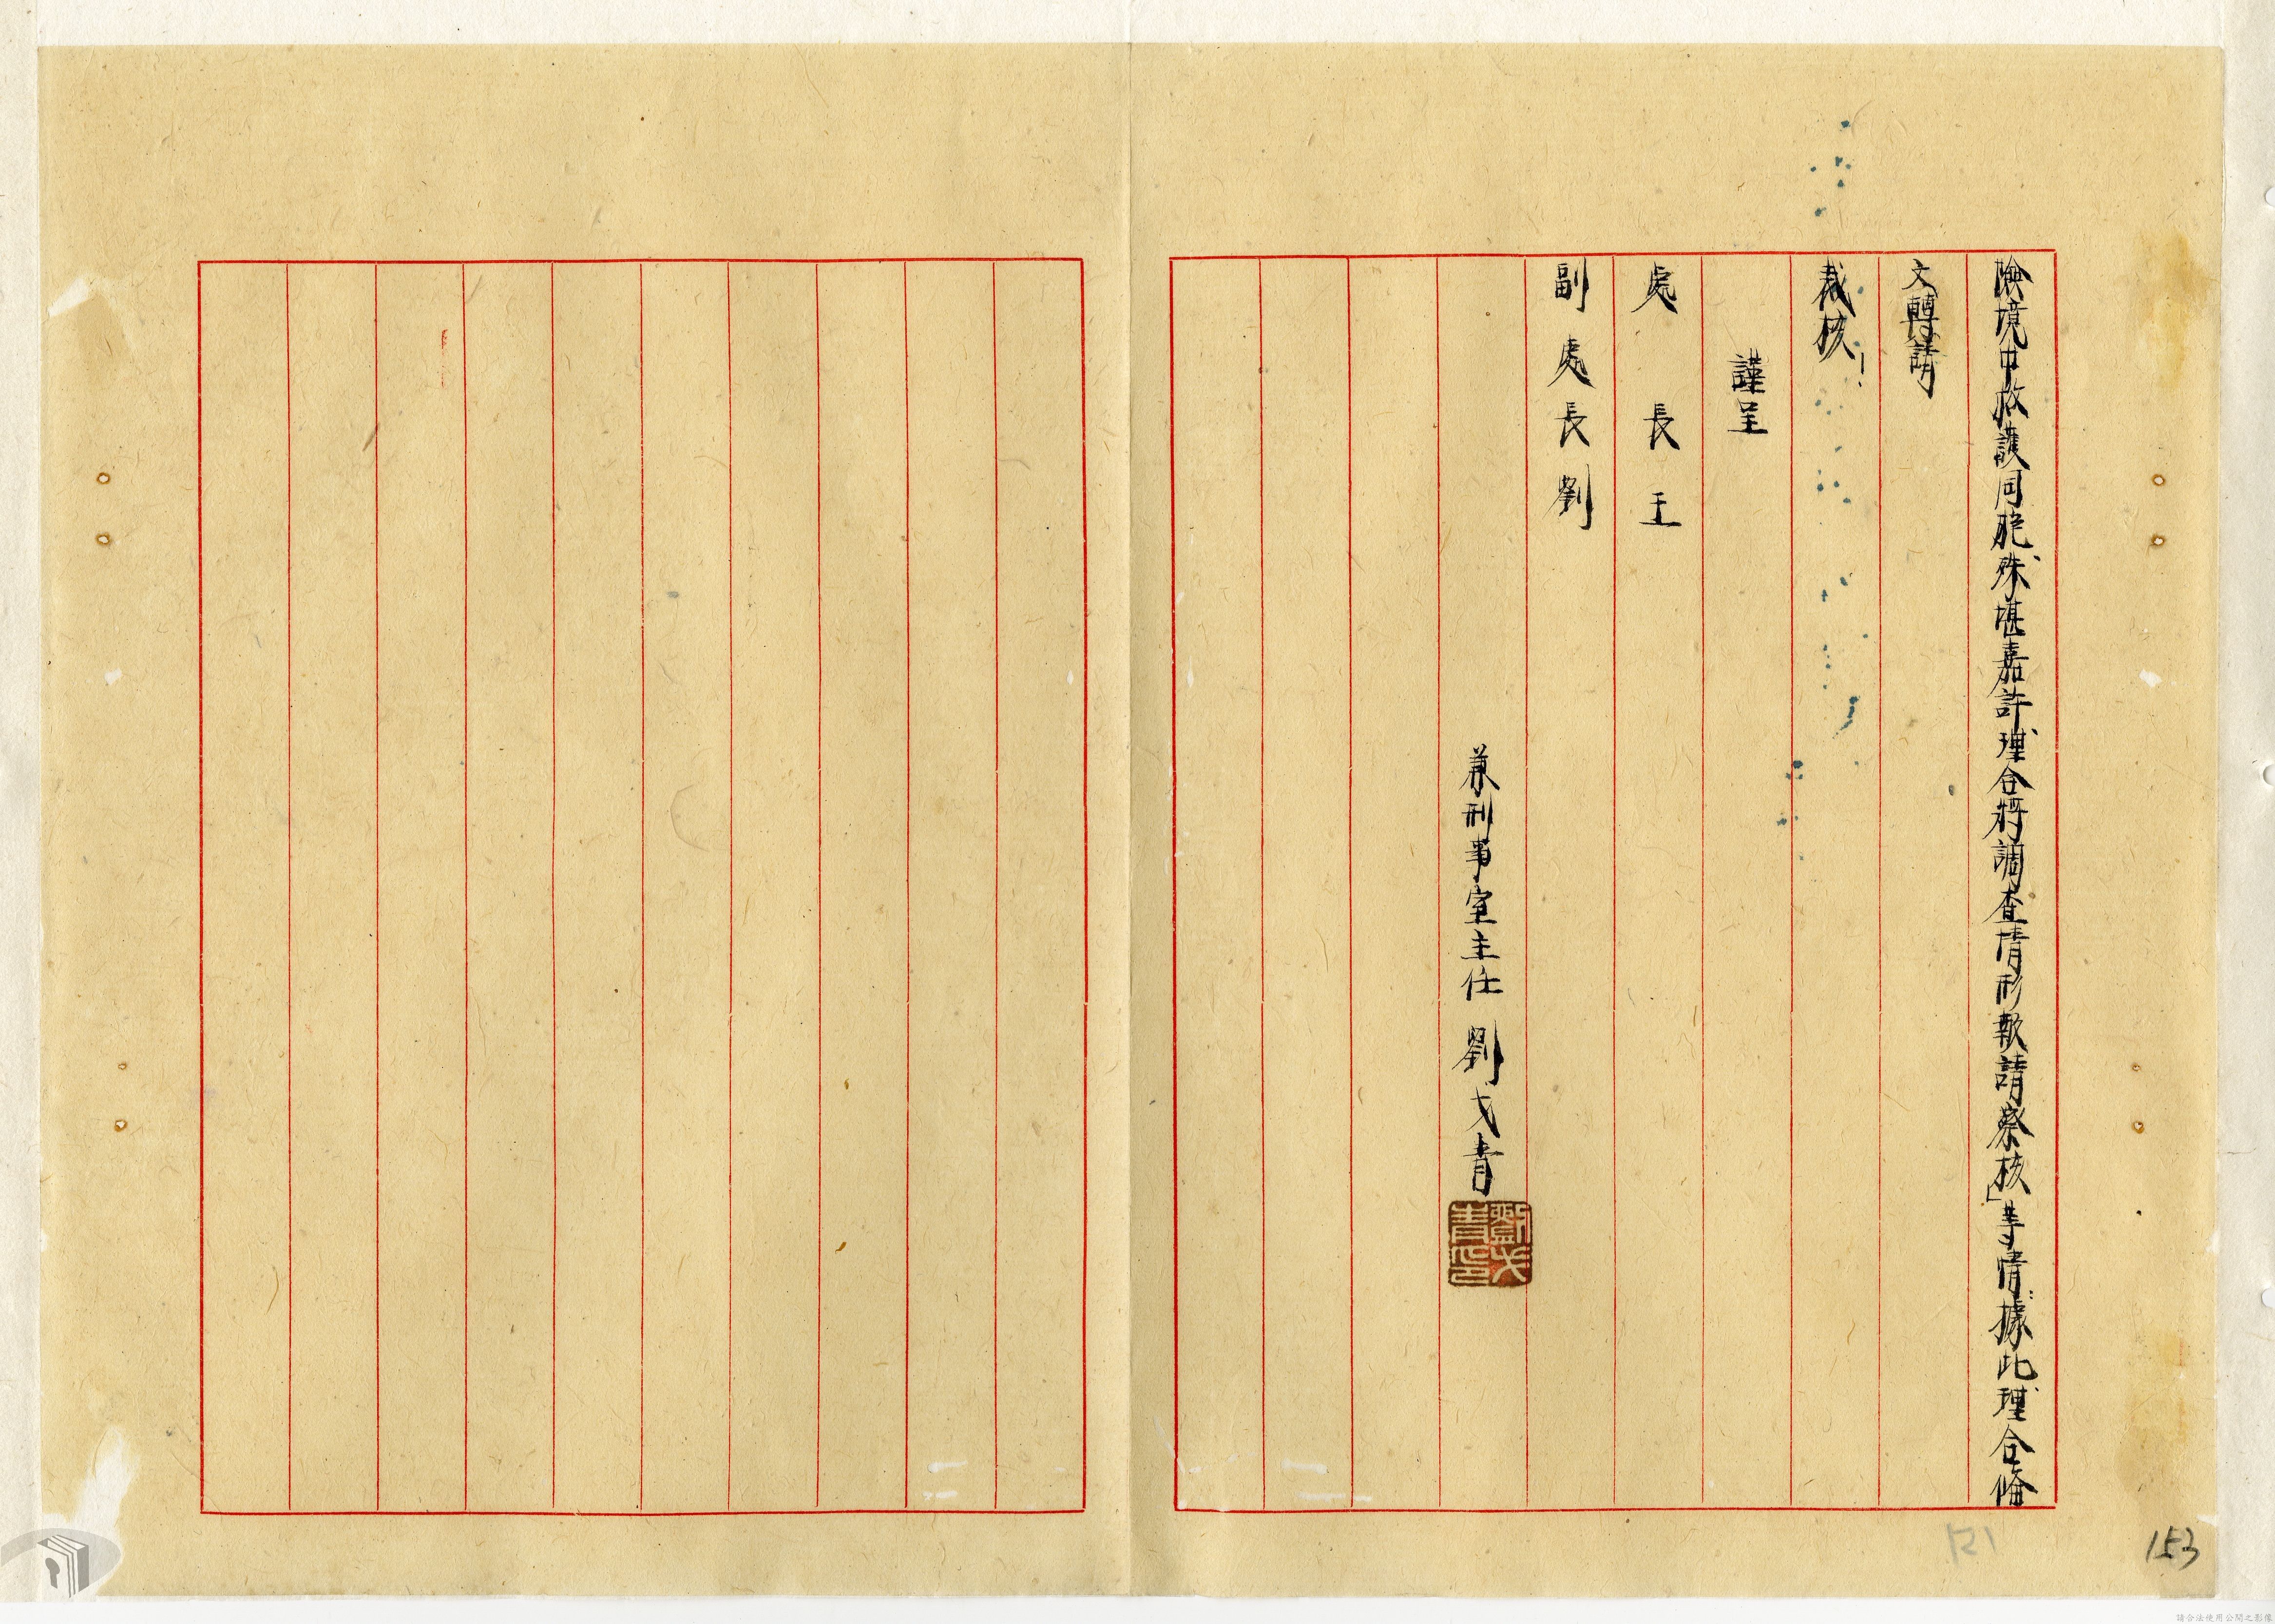 險境中救護同胞、殊堪嘉許、理合將調查情形報請察核」等情：據此、理合備
文轉請
裁核！
謹呈
處長王
副處長劉
兼刑事室主任劉戈青
劉戈青印
153
121
請合法使用公開之影像